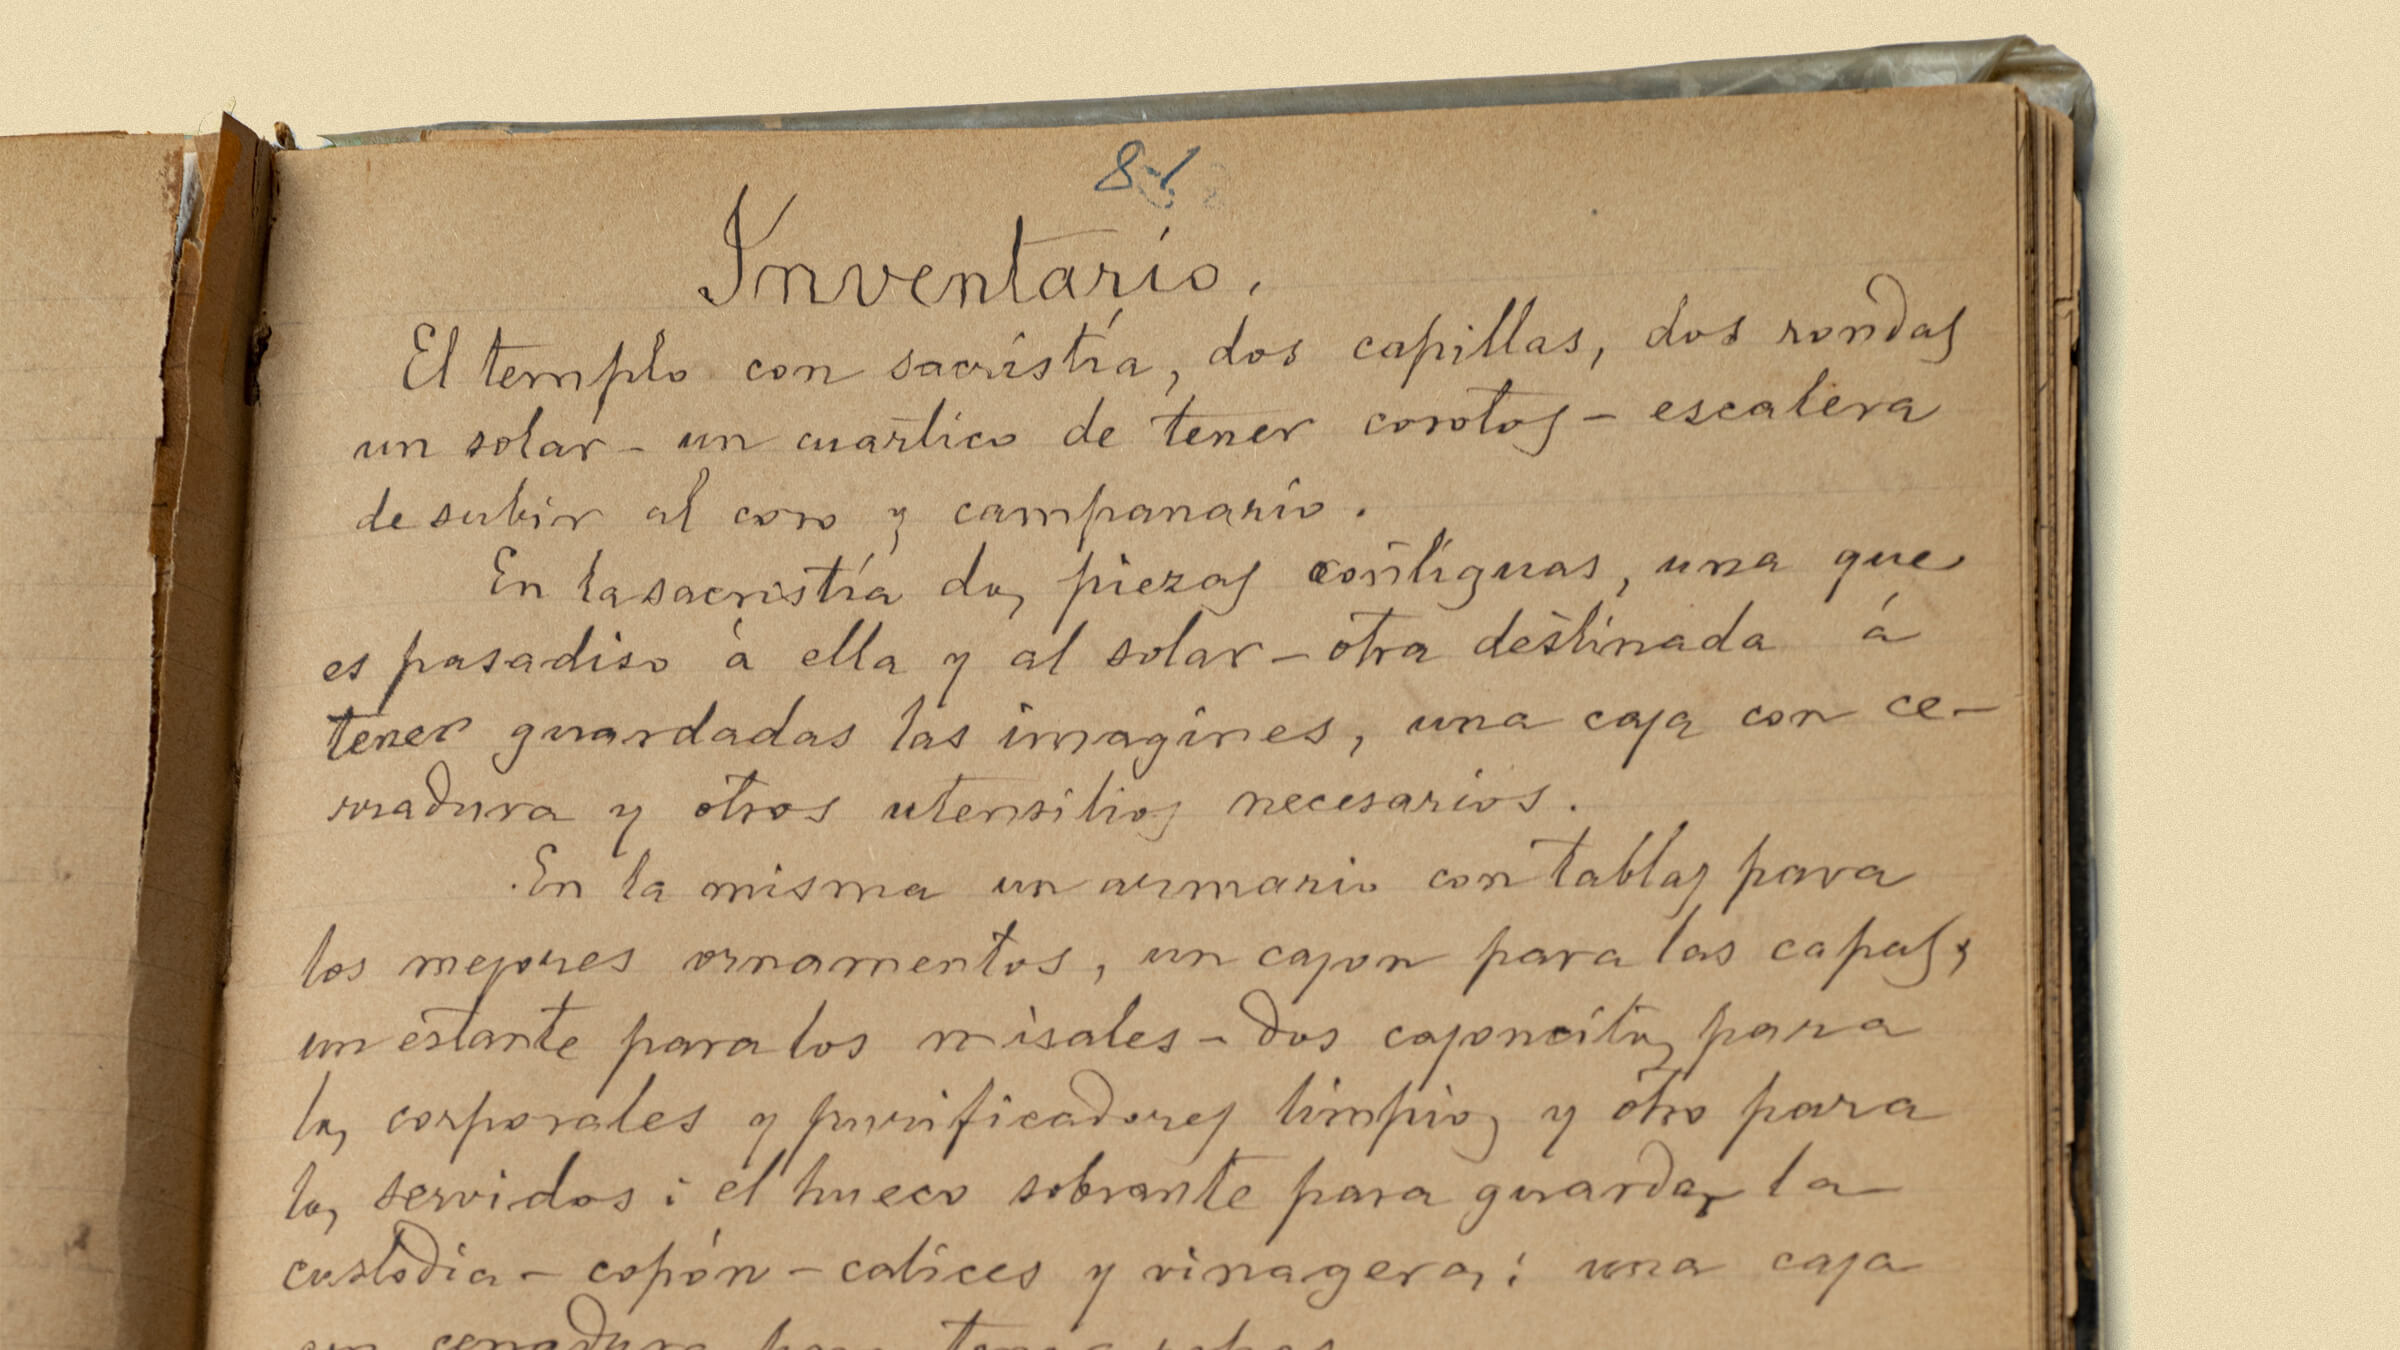 81
Inventario.
El templo con sacristía, dos capillas, dos rondas
un solar - un cuartico de tener corotos - escalera
de subir al coro y campanario.
En la sacristía dos piezas contiguas, una que
es pasadiso á ella y al solar - otra destinada á
tener guardadas las imagines, una caja con ce-
rradura y otros utensilios necesarios.
En la misma un armario con tablas para
los mejores ornamentos, un cajon para las capas,
un estante para los misales - dos cajoncitos para
los corporales y purificadores limpios y otro para
los servidos: el hueco sobrante para guardar la
custodia - copón - calices y vinageras: una caja
cerradura para tener